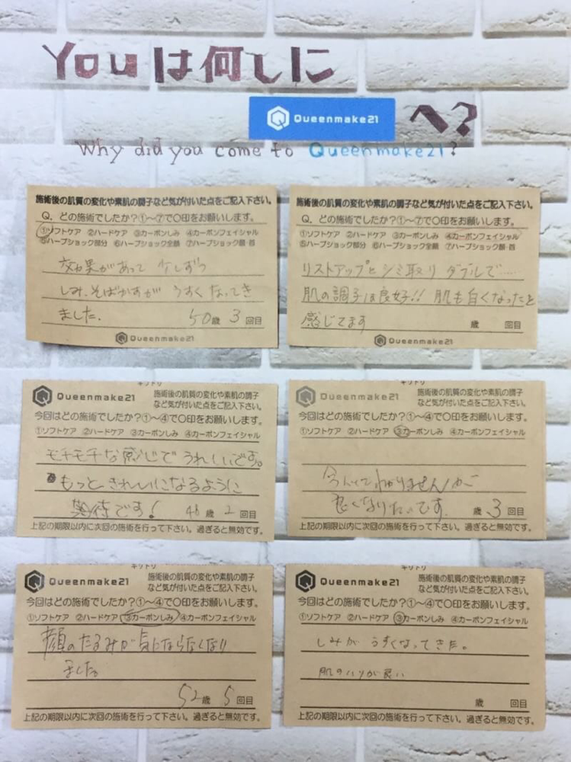 Youは何しに
Queenmake21 へ?
Why did you come to Queenmake21?
施術後の肌質の変化や素肌の調子など気が付いた点をご記入下さい。
Q. どの施術でしたか?①〜⑦で〇印をお願いします。
①ソフトケア ②ハードケア ③カーボンしみ ④カーボンフェイシャル
⑤ハーブショック部分 ⑥ハーブショック全顔 ⑦ハーブショック顔・首
効果があって 少しずつ
しみ、そばかすが うすくなってき
ました。 50歳 3回目
Queenmake21
施術後の肌質の変化や素肌の調子など気が付いた点をご記入下さい。
Q. どの施術でしたか?①〜⑦で〇印をお願いします。
①ソフトケア ②ハードケア ③カーボンしみ ④カーボンフェイシャル
⑤ハーブショック部分 ⑥ハーブショック全顔 ⑦ハーブショック顔・首
リストアップとシミ取り ダブルで…
肌の調子は良好!! 肌も白くなったと
感じてます 歳 回目
Queenmake21
Queenmake21 施術後の肌質の変化や素肌の調子
など気が付いた点をご記入下さい。
今回はどの施術でしたか?①〜④で〇印をお願いします。
①ソフトケア ②ハードケア ③カーボンしみ ④カーボンフェイシャル
モチモチな感じで うれしいです。
もっときれいになるように
期待です! 48歳 2回目
上記の期限以内に次回の施術を行って下さい。過ぎると無効です。
キリトリ
Queenmake21 施術後の肌質の変化や素肌の調子
など気が付いた点をご記入下さい。
今回はどの施術でしたか?①〜④で〇印をお願いします。
①ソフトケア ②ハードケア ③カーボンしみ ④カーボンフェイシャル
わかりません
なりたいです。 歳 3回目
上記の期限以内に次回の施術を行って下さい。過ぎると無効です。
キリトリ
Queenmake21 施術後の肌質の変化や素肌の調子
など気が付いた点をご記入下さい。
今回はどの施術でしたか?①〜④で〇印をお願いします。
①ソフトケア ②ハードケア ③カーボンしみ ④カーボンフェイシャル
顔のたるみが気にならなくなり
ました
52歳 5回目
上記の期限以内に次回の施術を行って下さい。過ぎると無効です。
キリトリ
Queenmake21 施術後の肌質の変化や素肌の調子
など気が付いた点をご記入下さい。
今回はどの施術でしたか?①〜④で〇印をお願いします。
①ソフトケア ②ハードケア ③カーボンしみ ④カーボンフェイシャル
しみが うすくなってきた。
肌のハリが良い
歳 回目
上記の期限以内に次回の施術を行って下さい。過ぎると無効です。